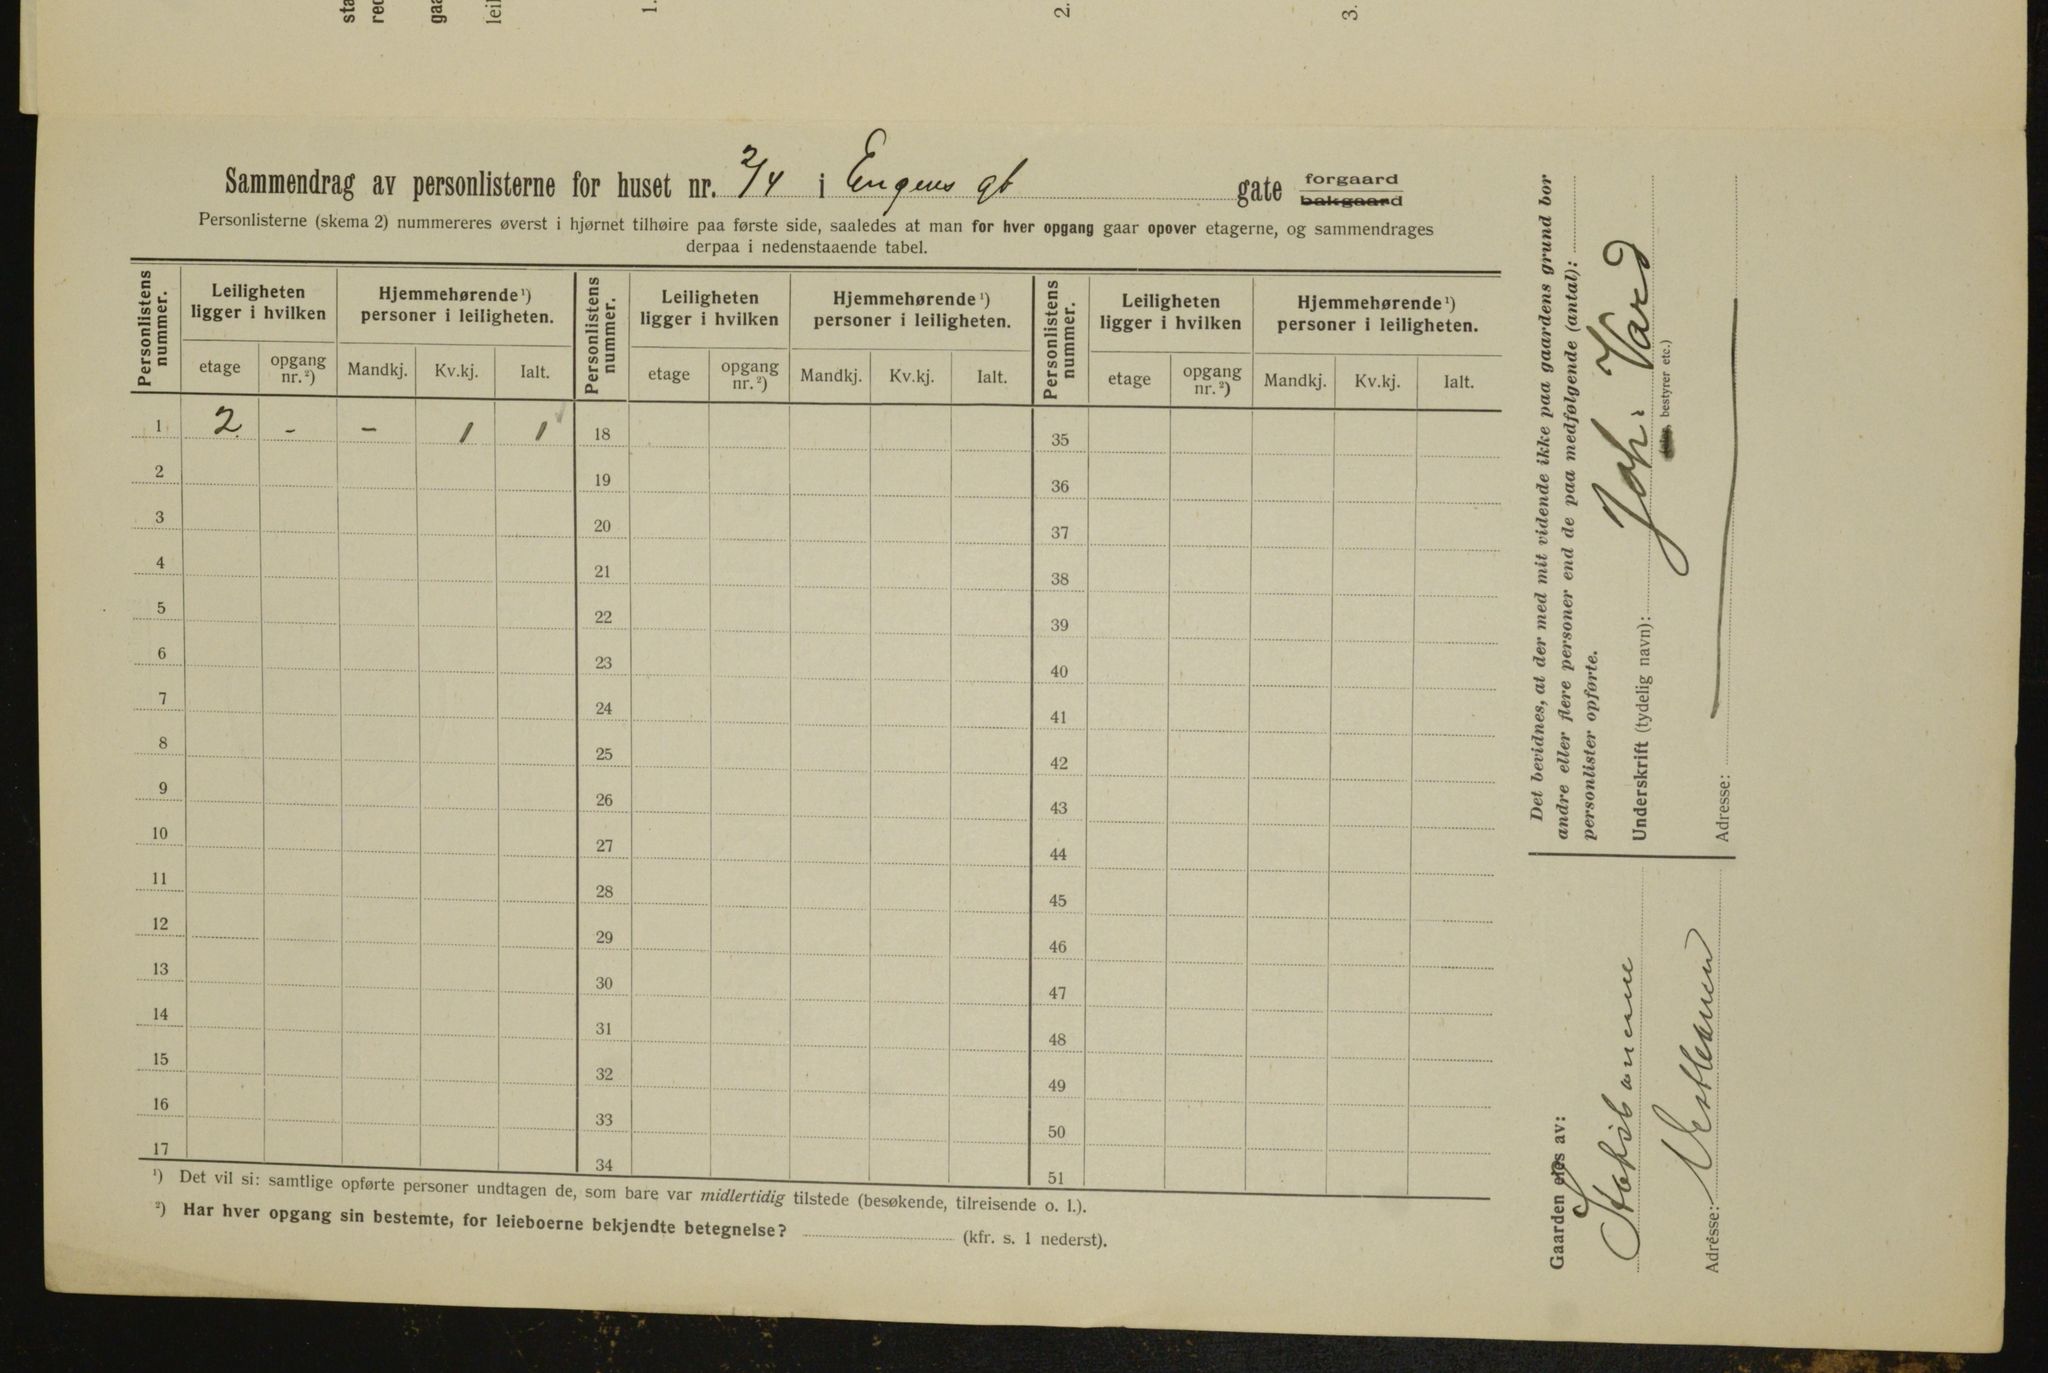 sta
red
gaa
leil
1.
2.
3.
Sammendrag av personlisterne for huset nr. 2/4 i Engens gt gate forgaard
bakgaard
Personlisterne (skema 2) nummereres øverst i hjørnet tilhøire paa første side, saaledes at man for hver opgang gaar opover etagerne, og sammendrages
derpaa i nedenstaaende tabel.
Personlistens nummer. Leiligheten ligger i hvilken Hjemmehørende¹) personer i leiligheten. Personlistens nummer. Leiligheten ligger i hvilken Hjemmehørende¹) personer i leiligheten. Personlistens nummer. Leiligheten ligger i hvilken Hjemmehørende¹) personer i leiligheten.
etage opgang nr.²) Mandkj. Kv.kj. Ialt. etage opgang nr.²) Mandkj. Kv.kj. Ialt. etage opgang nr.²) Mandkj. Kv.kj. Ialt.
1 2 - - 1 1 18 35
2 19 36
3 20 37
4 21 38
5 22 39
6 23 40
7 24 41
8 25 42
9 26 43
10 27 44
11 28 45
12 29 46
13 30 47
14 31 48
15 32 49
16 33 50
17 34 51
¹) Det vil si: samtlige opførte personer undtagen de, som bare var midlertidig tilstede (besøkende, tilreisende o. l.).
²) Har hver opgang sin bestemte, for leieboerne bekjendte betegnelse? (kfr. s. 1 nederst).
Det bevidnes, at der med mit vidende ikke paa gaardens grund bor
andre eller flere personer end de paa medfølgende (antal):
personlister opførte.
Underskrift (tydelig navn): Joh. Vard
bestyrer etc.)
Adresse:
Gaarden eies av:
Adresse: